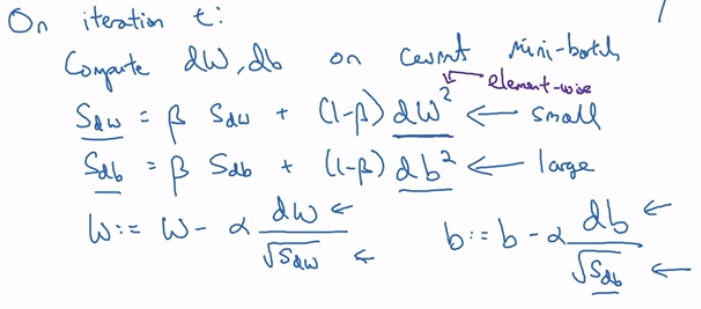 On iteration t:
Compute dW, db on current mini-batch
element-wise
S_dw = β S_dw + (1-β) dW² ← small
S_db = β S_db + (1-β) db² ← large
W := W - α dW / √S_dw ← b := b - α db / √S_db ←